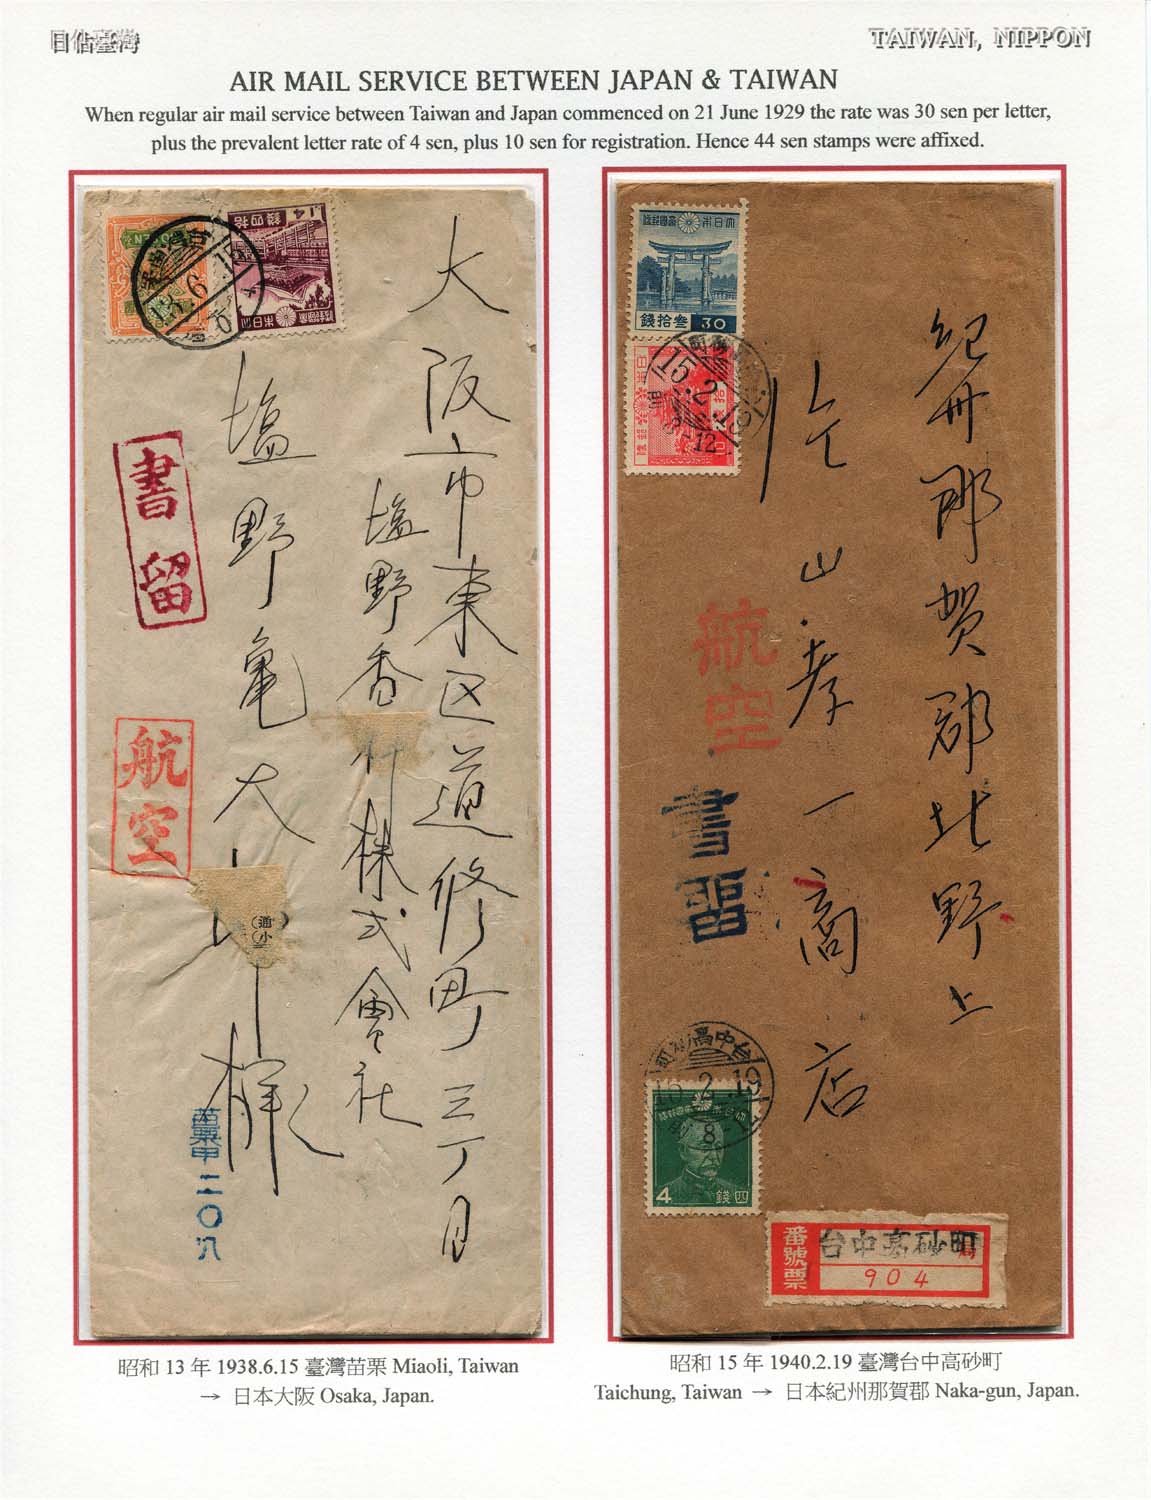 日佔臺灣
TAIWAN, NIPPON
AIR MAIL SERVICE BETWEEN JAPAN & TAIWAN
When regular air mail service between Taiwan and Japan commenced on 21 June 1929 the rate was 30 sen per letter,
plus the prevalent letter rate of 4 sen, plus 10 sen for registration. Hence 44 sen stamps were affixed.
大阪市東区道修町三丁目
塩野香料株式會社
塩野亀大郎様
書留
航空
苗栗甲二〇八
14
錢四拾
便郵國帝本日大
13.6.15
紀州那賀郡北野上
山孝一商店
航空
書留
便郵國帝本日大
錢拾叁 30
15.2.19
8-12
台中高砂町
15.2.19
4 錢四
番號票
台中高砂町
904
昭和 13 年 1938.6.15 臺灣苗栗 Miaoli, Taiwan
→ 日本大阪 Osaka, Japan.
昭和 15 年 1940.2.19 臺灣台中高砂町
Taichung, Taiwan → 日本紀州那賀郡 Naka-gun, Japan.